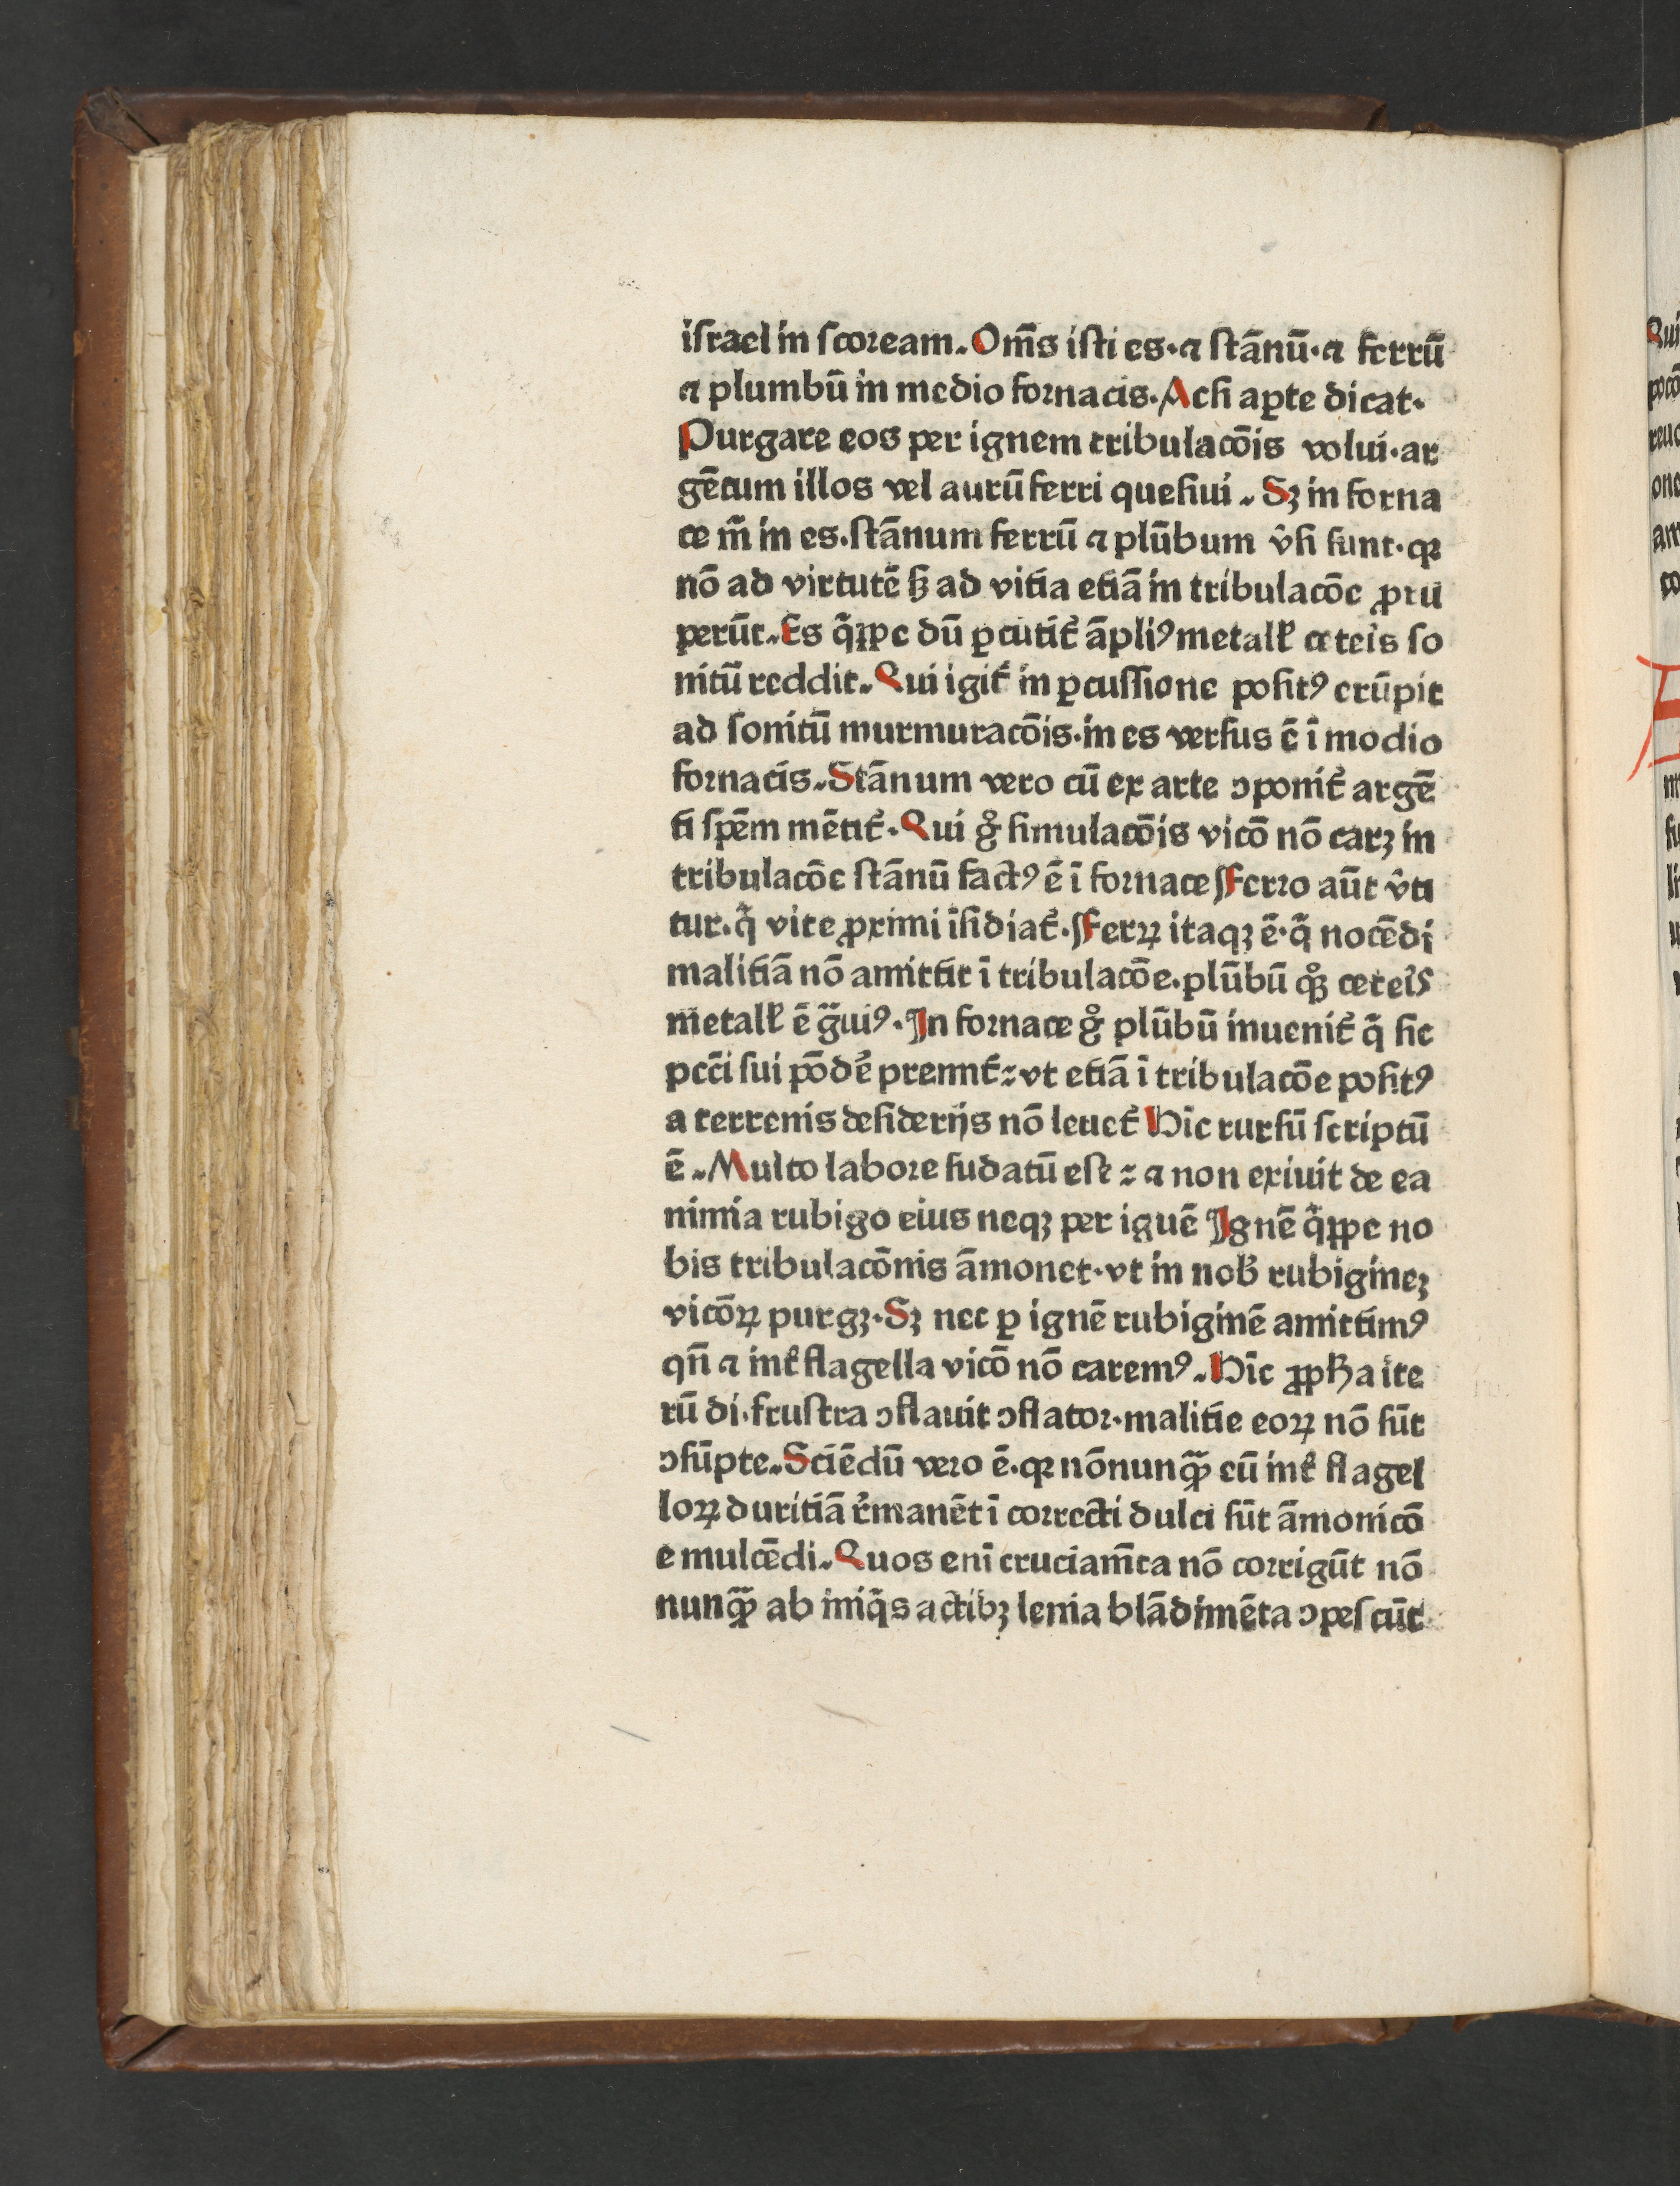 iſrael in ſcoꝛeam. Om̄s iſti es. ⁊ ſtānū. ⁊ ferrū
⁊ plumbū in medio foꝛnacis. Acſi aꝑte dicat.
Purgare eos per ignem tribulacōis volui. ar
gētum illos vel aurū ferri queſiui. Sꝫ in forna
ce m̄ in es. ſtānum ferrū ⁊ plūbum v̂ſi ſunt. qꝛ
nō ad virtutē ſꝫ ad vitia etiā in tribulacōe ꝓru
perūt. Es q̄ꝑpe dū ꝑcutit᷑ āpliꝰ metall᷑ ceteis ſo
nitū reddit. Qui igit᷑ in ꝑcuſſione poſitꝰ erūpit
ad ſonitū murmuracōis. in es verſus ē ī modio
foꝛnacis. Stānum vero cū ex arte ↄponit᷑ argē
ti ſpēm mētit᷑. Qui gͦ ſimulacōis vicō nō carꝫ in
tribulacōe ſtānū factꝰ ē ī foꝛnace Ferꝛo aūt v̂ti
tur. q̄ vite ꝓximi īſidiat᷑. Ferꝝ itaqꝫ ē. q̄ nocēdi
malitiā nō amittit ī tribulacōe. plūbū qͦꝫ ceteis
metall᷑ ē g̈uiꝰ. In foꝛnace gͦ plūbū inuenit᷑ q̄ ſic
pcc̄i ſui pōde᷑ premit᷑: vt etiā ī tribulacōe poſitꝰ
a terrenis deſiderijs nō leuet᷑ Hīc rurſū ſcriptū
ē. Multo laboꝛe ſudatū eſt: ⁊ non exiuit de ea
nimia rubigo eius neqꝫ per iguē Ignē q̄ꝑpe no
bis tribulacōnis āmonet. vt in nob᷑ rubigineꝫ
vicōꝝ purgꝫ. Sꝫ nec ꝑ ignē rubiginē amittimꝰ
qn̄ ⁊ int᷑ flagella vicō nō caremꝰ. Hīc ꝓph̄a ite
rū di. fruſtra ↄflauit ↄflatoꝛ. malitie eoꝝ nō ſūt
ↄſūpte. Sciēdū veꝛo ē. qꝛ nōnunqꝫ̄ cū int᷑ flagel
loꝝ duritiā r᷑manēt ī coꝛrecti dulci ſūt āmonicō
e mulcēdi. Quos eni cruciam̄ta nō coꝛrigūt nō
nunqꝫ̄ ab iniq̄s actibꝫ lenia blādimēta ↄpeſcūt